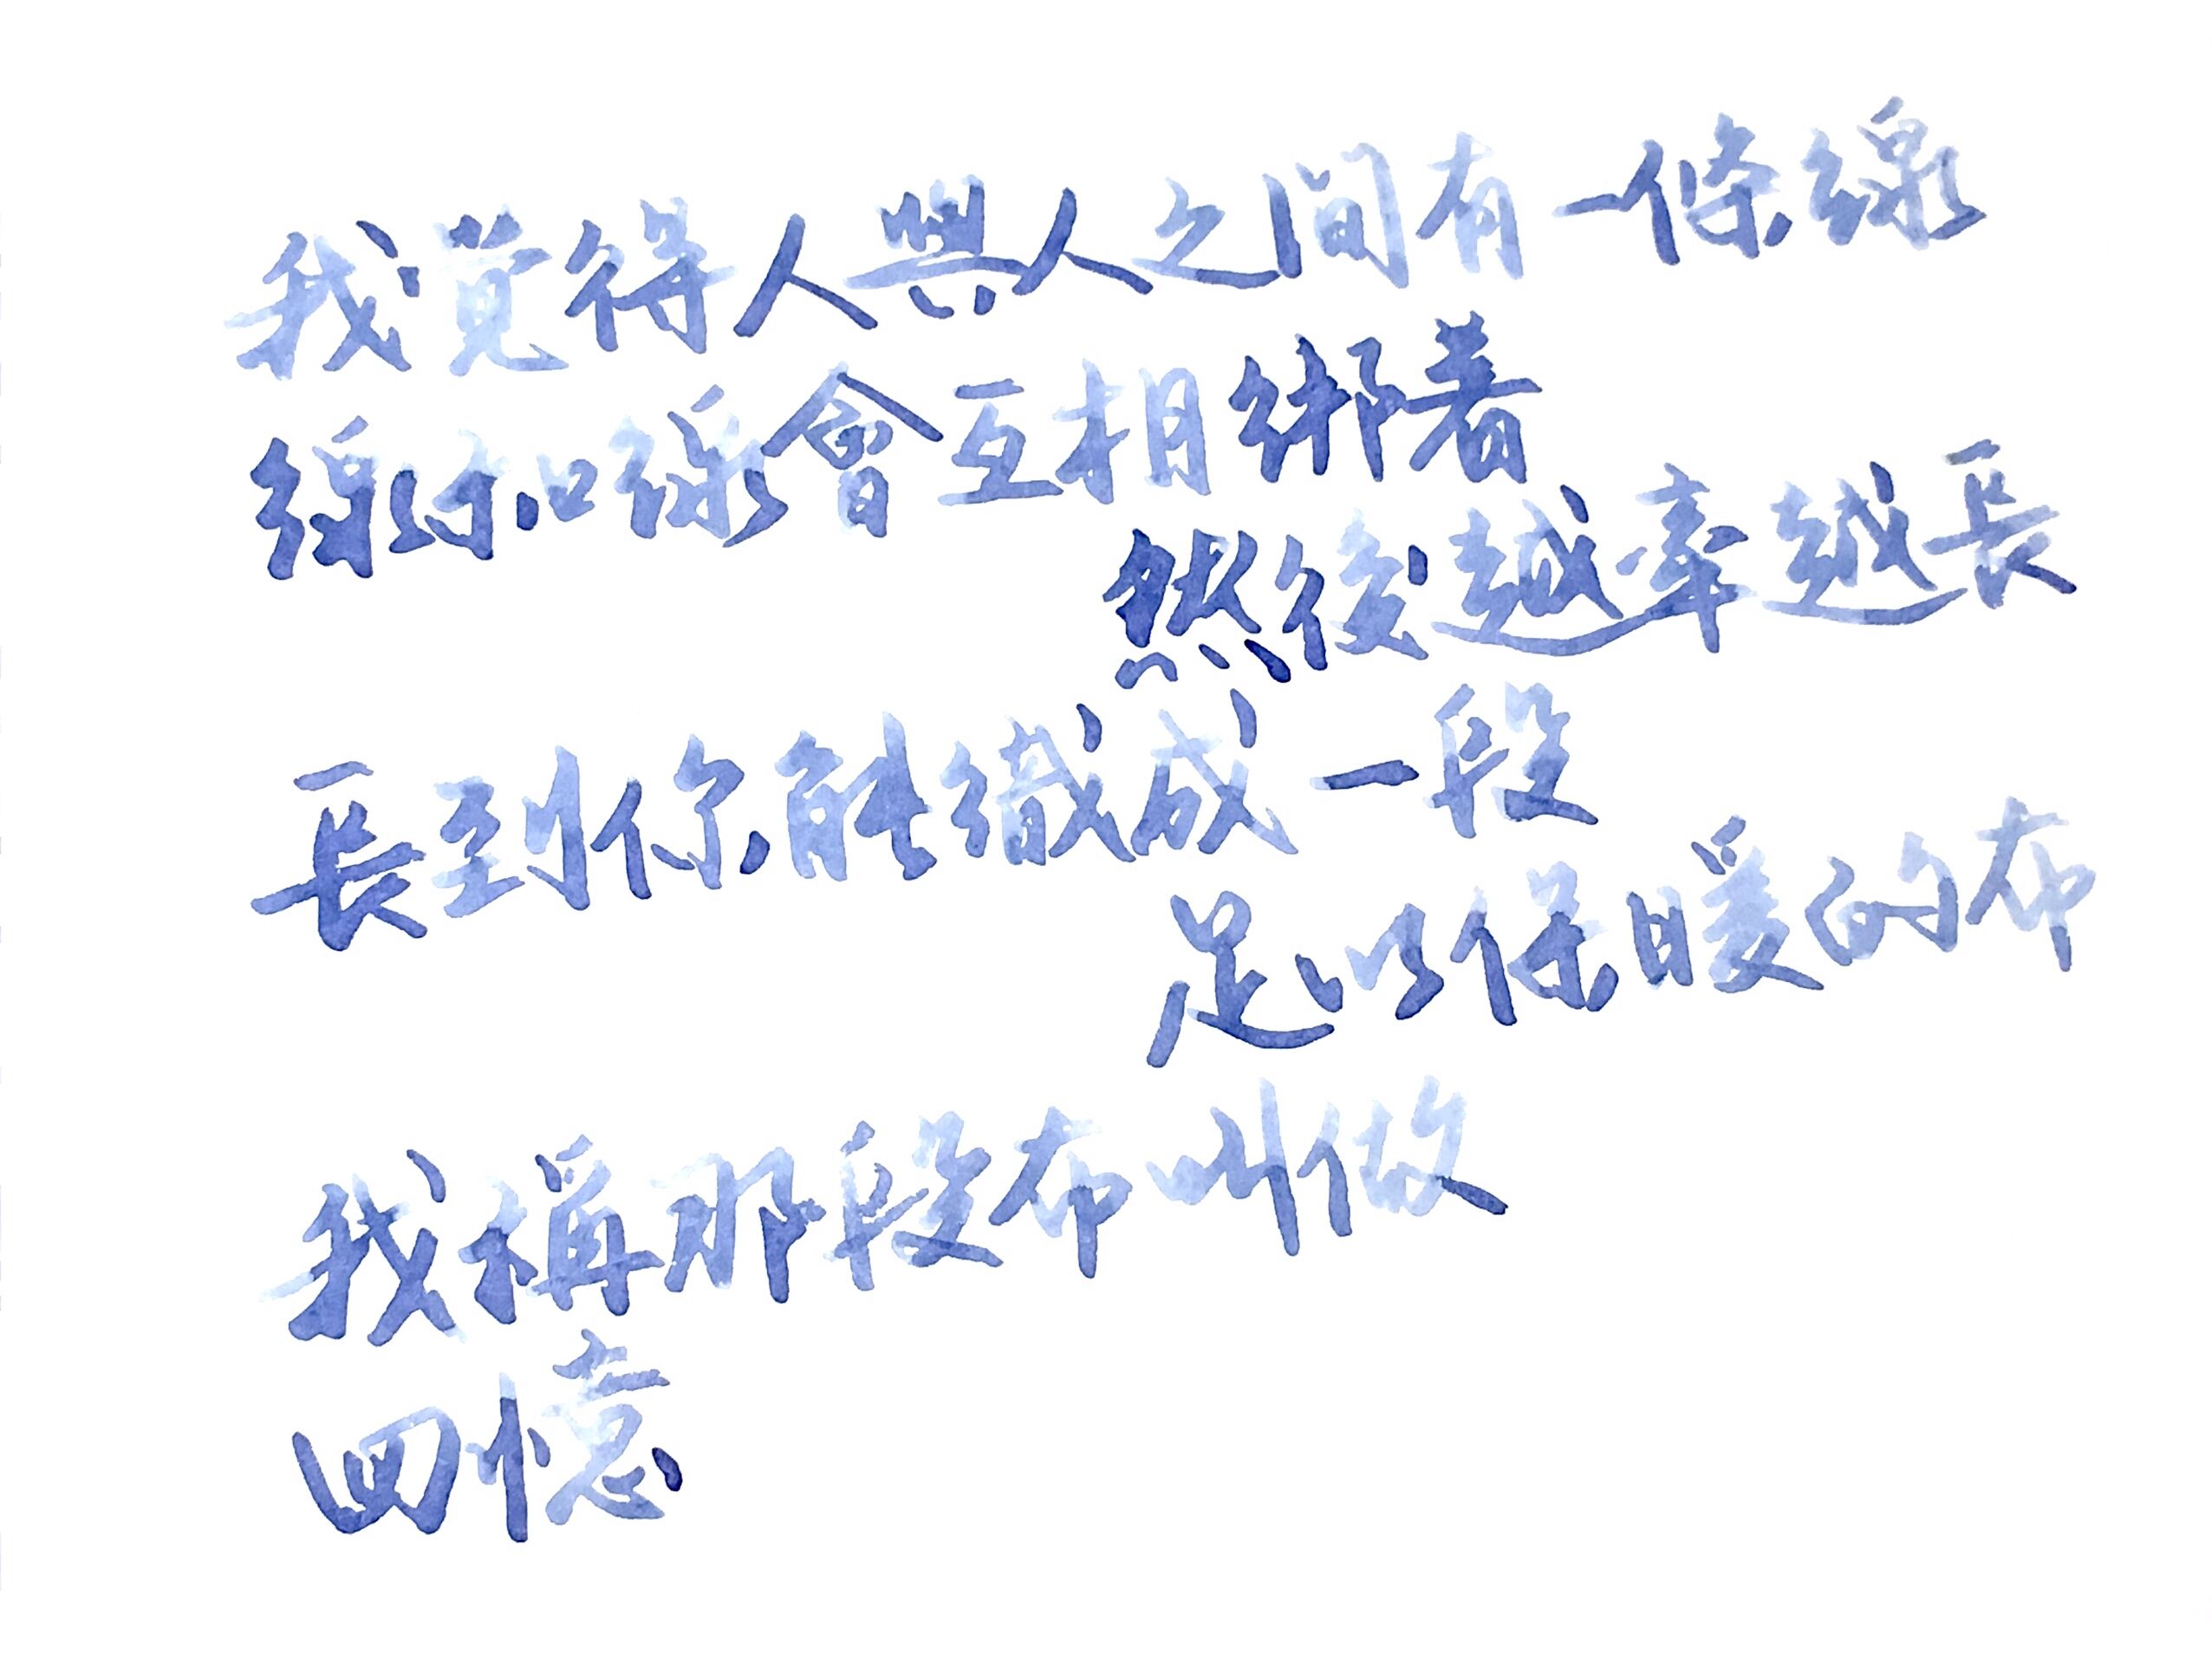 我覺得人與人之間有一條線
線和線會互相綁著
然後越牽越長
長到你能織成一段
足以保暖的布
我稱那段布叫做
回憶